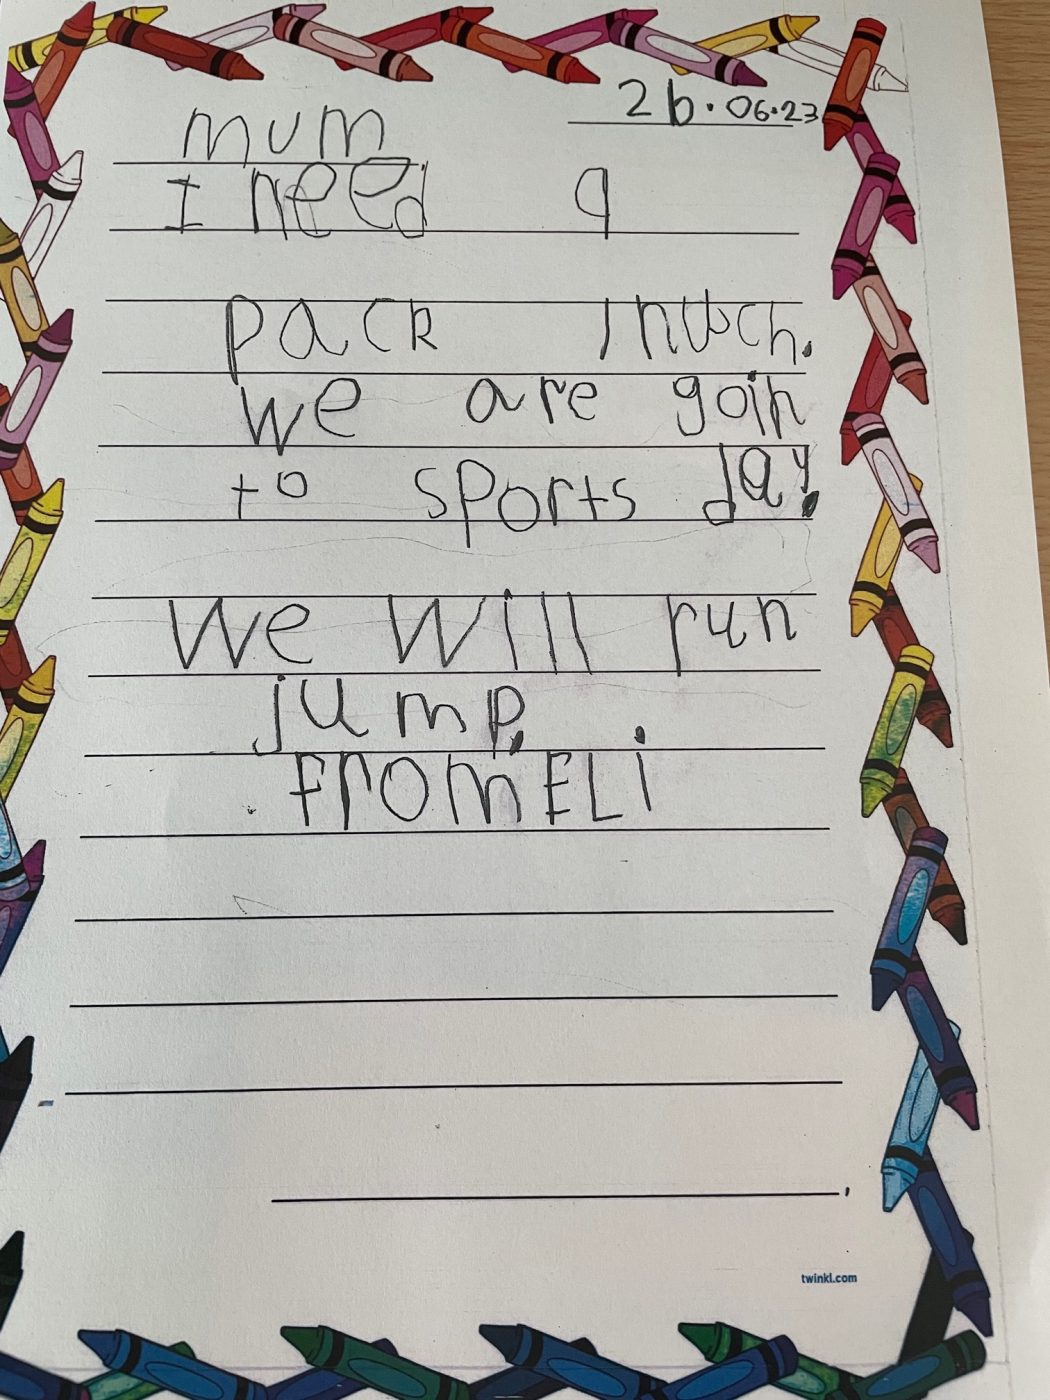 26.06.23
mum
I need a
pack lnuch.
we are goin
to sports day.
We will run
jump.
From ELi
twinkl.com